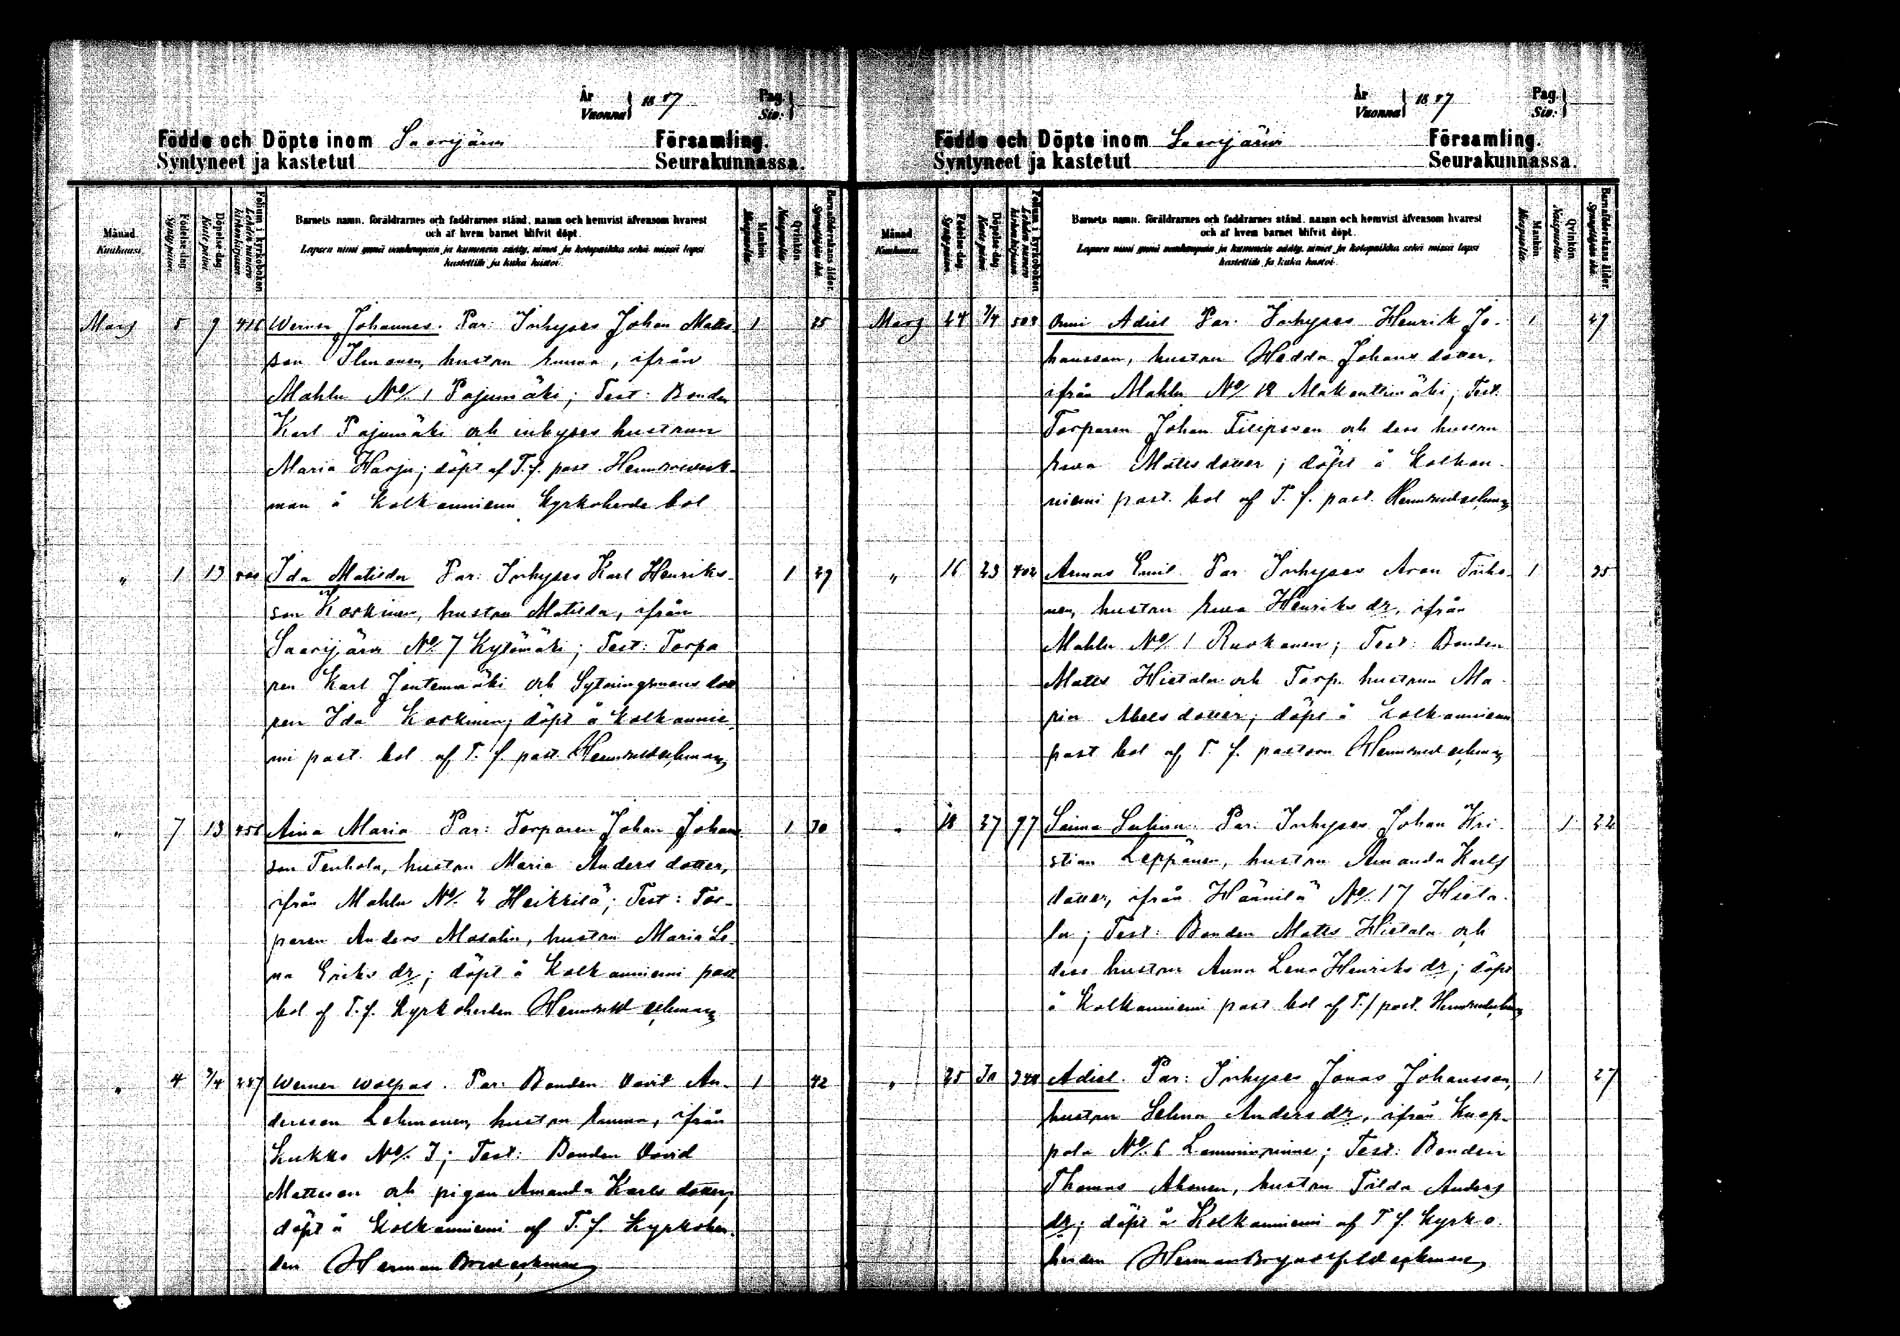 År
Vuonna } 1887
Pag.
Siv. }
Födde och Döpte inom Saarijärvi Församling.
Syntyneet ja kastetut Seurakunnassa.
Månad. Kuukausi.
Födelse-dag. Syntymä-päivä.
Döpelse-dag. Kaste-päivä.
Folium i kyrkoboken. Lehden numero kirkonkirjassa.
Barnets namn, föräldrarnes och faddrarnes stånd, namn och hemvist äfvensom hvarest
och af hvem barnet blifvit döpt.
Lapsen nimi ynnä vanhempain ja kummein sääty, nimet ja kotopaikka sekä missä lapsi
kastettiin ja kuka kastoi.
Mankön. Miespuolia.
Qvinkön. Naispuolia.
Barnaföderskans ålder. Synnyttäjän ikä.
Mars 5 9 416 Werner Johannes. Par: Inhyses Johan Matts- 1 25
son Ilmonen, hustru Emma, ifrån
Mahlu No/. 1 Pajumäki; Test: Bonden
Karl Pajumäki och inhyses hustrun
Maria Harju; döpt af T. f. past.
man å Kolkanniemi Kyrkoherde bol
" 1 13 Ida Matilda Par: Inhyses Karl Henriks- 1 29
son Koskinen, hustru Matilda, ifrån
Saarijärvi No/. 7 Kytömäki; Test: Torpa
ren Karl Jontemäki och Sytningsmans dot
ren Ida Koskinen; döpt å Kolkannie
mi past. bol af T. f. past.
" 7 13 456 Aina Maria Par: Torparen Johan Johans 1 30
son Tenhola, hustru Maria Anders dotter,
ifrån Mahlu No/. 2 Heikkilä; Test: Tor-
paren Anders Masalin, hustru Maria Le-
na Eriks dr; döpt å Kolkanniemi past
bol af T. f. Kyrkoherden
" 4 3/4 287 Werner Wolfas. Par: Bonden David An- 1 42
dersson Lehmonen, hustru Emma, ifrån
Kukko No/. 3; Test: Bonden David
Mattsson och pigan Amanda Karls dotter;
döpt å Kolkanniemi af T. f. Kyrkoher-
den Herman
År
Vuonna } 1887
Pag.
Siv. }
Födde och Döpte inom Saarijärvi Församling.
Syntyneet ja kastetut Seurakunnassa.
Månad. Kuukausi.
Födelse-dag. Syntymä-päivä.
Döpelse-dag. Kaste-päivä.
Folium i kyrkoboken. Lehden numero kirkonkirjassa.
Barnets namn, föräldrarnes och faddrarnes stånd, namn och hemvist äfvensom hvarest
och af hvem barnet blifvit döpt.
Lapsen nimi ynnä vanhempain ja kummein sääty, nimet ja kotopaikka sekä missä lapsi
kastettiin ja kuka kastoi.
Mankön. Miespuolia.
Qvinkön. Naispuolia.
Barnaföderskans ålder. Synnyttäjän ikä.
Mars 24 3/4 Onni Adiel Par: Inhyses Henrik Jo- 1 29
hansson, hustru Hedda Johans dotter,
ifrån Mahlu No/. 12; Test:
Torparen Johan Filipsson och dess hustru
Eewa Matts dotter; döpt å Kolkan-
niemi past. bol af T. f. past.
" 16 23 402 Armas Emil. Par: Inhyses Aron Tiiho- 1 35
nen, hustru Eewa Henriks dr, ifrån
Mahlu No/. 1 Ruokanen; Test: Bonden
Matts Hietala och Torp. hustrun Ma-
ria Abels dotter; döpt å Kolkanniemi
past bol af T. f. pastorn
" 18 27 97 Saima Salina. Par: Inhyses Johan Kri- 1 22
stian Leppänen, hustru Amanda Karls
dotter, ifrån Häänilä No/. 17 Hieta-
la; Test: Bonden Matts Hietala och
dess hustru Anna Lena Henriks dr; döpt
å Kolkanniemi past bol af T. f. past.
" 25 30 340 Adiel. Par: Inhyses Jonas Johansson, 1 27
hustru Selma Anders dr, ifrån Knop-
pola No/. 6; Test: Bonden
Thomas Ahonen, hustru Tilda Anders
dr; döpt å Kolkanniemi af T. f. Kyrko-
herden Herman